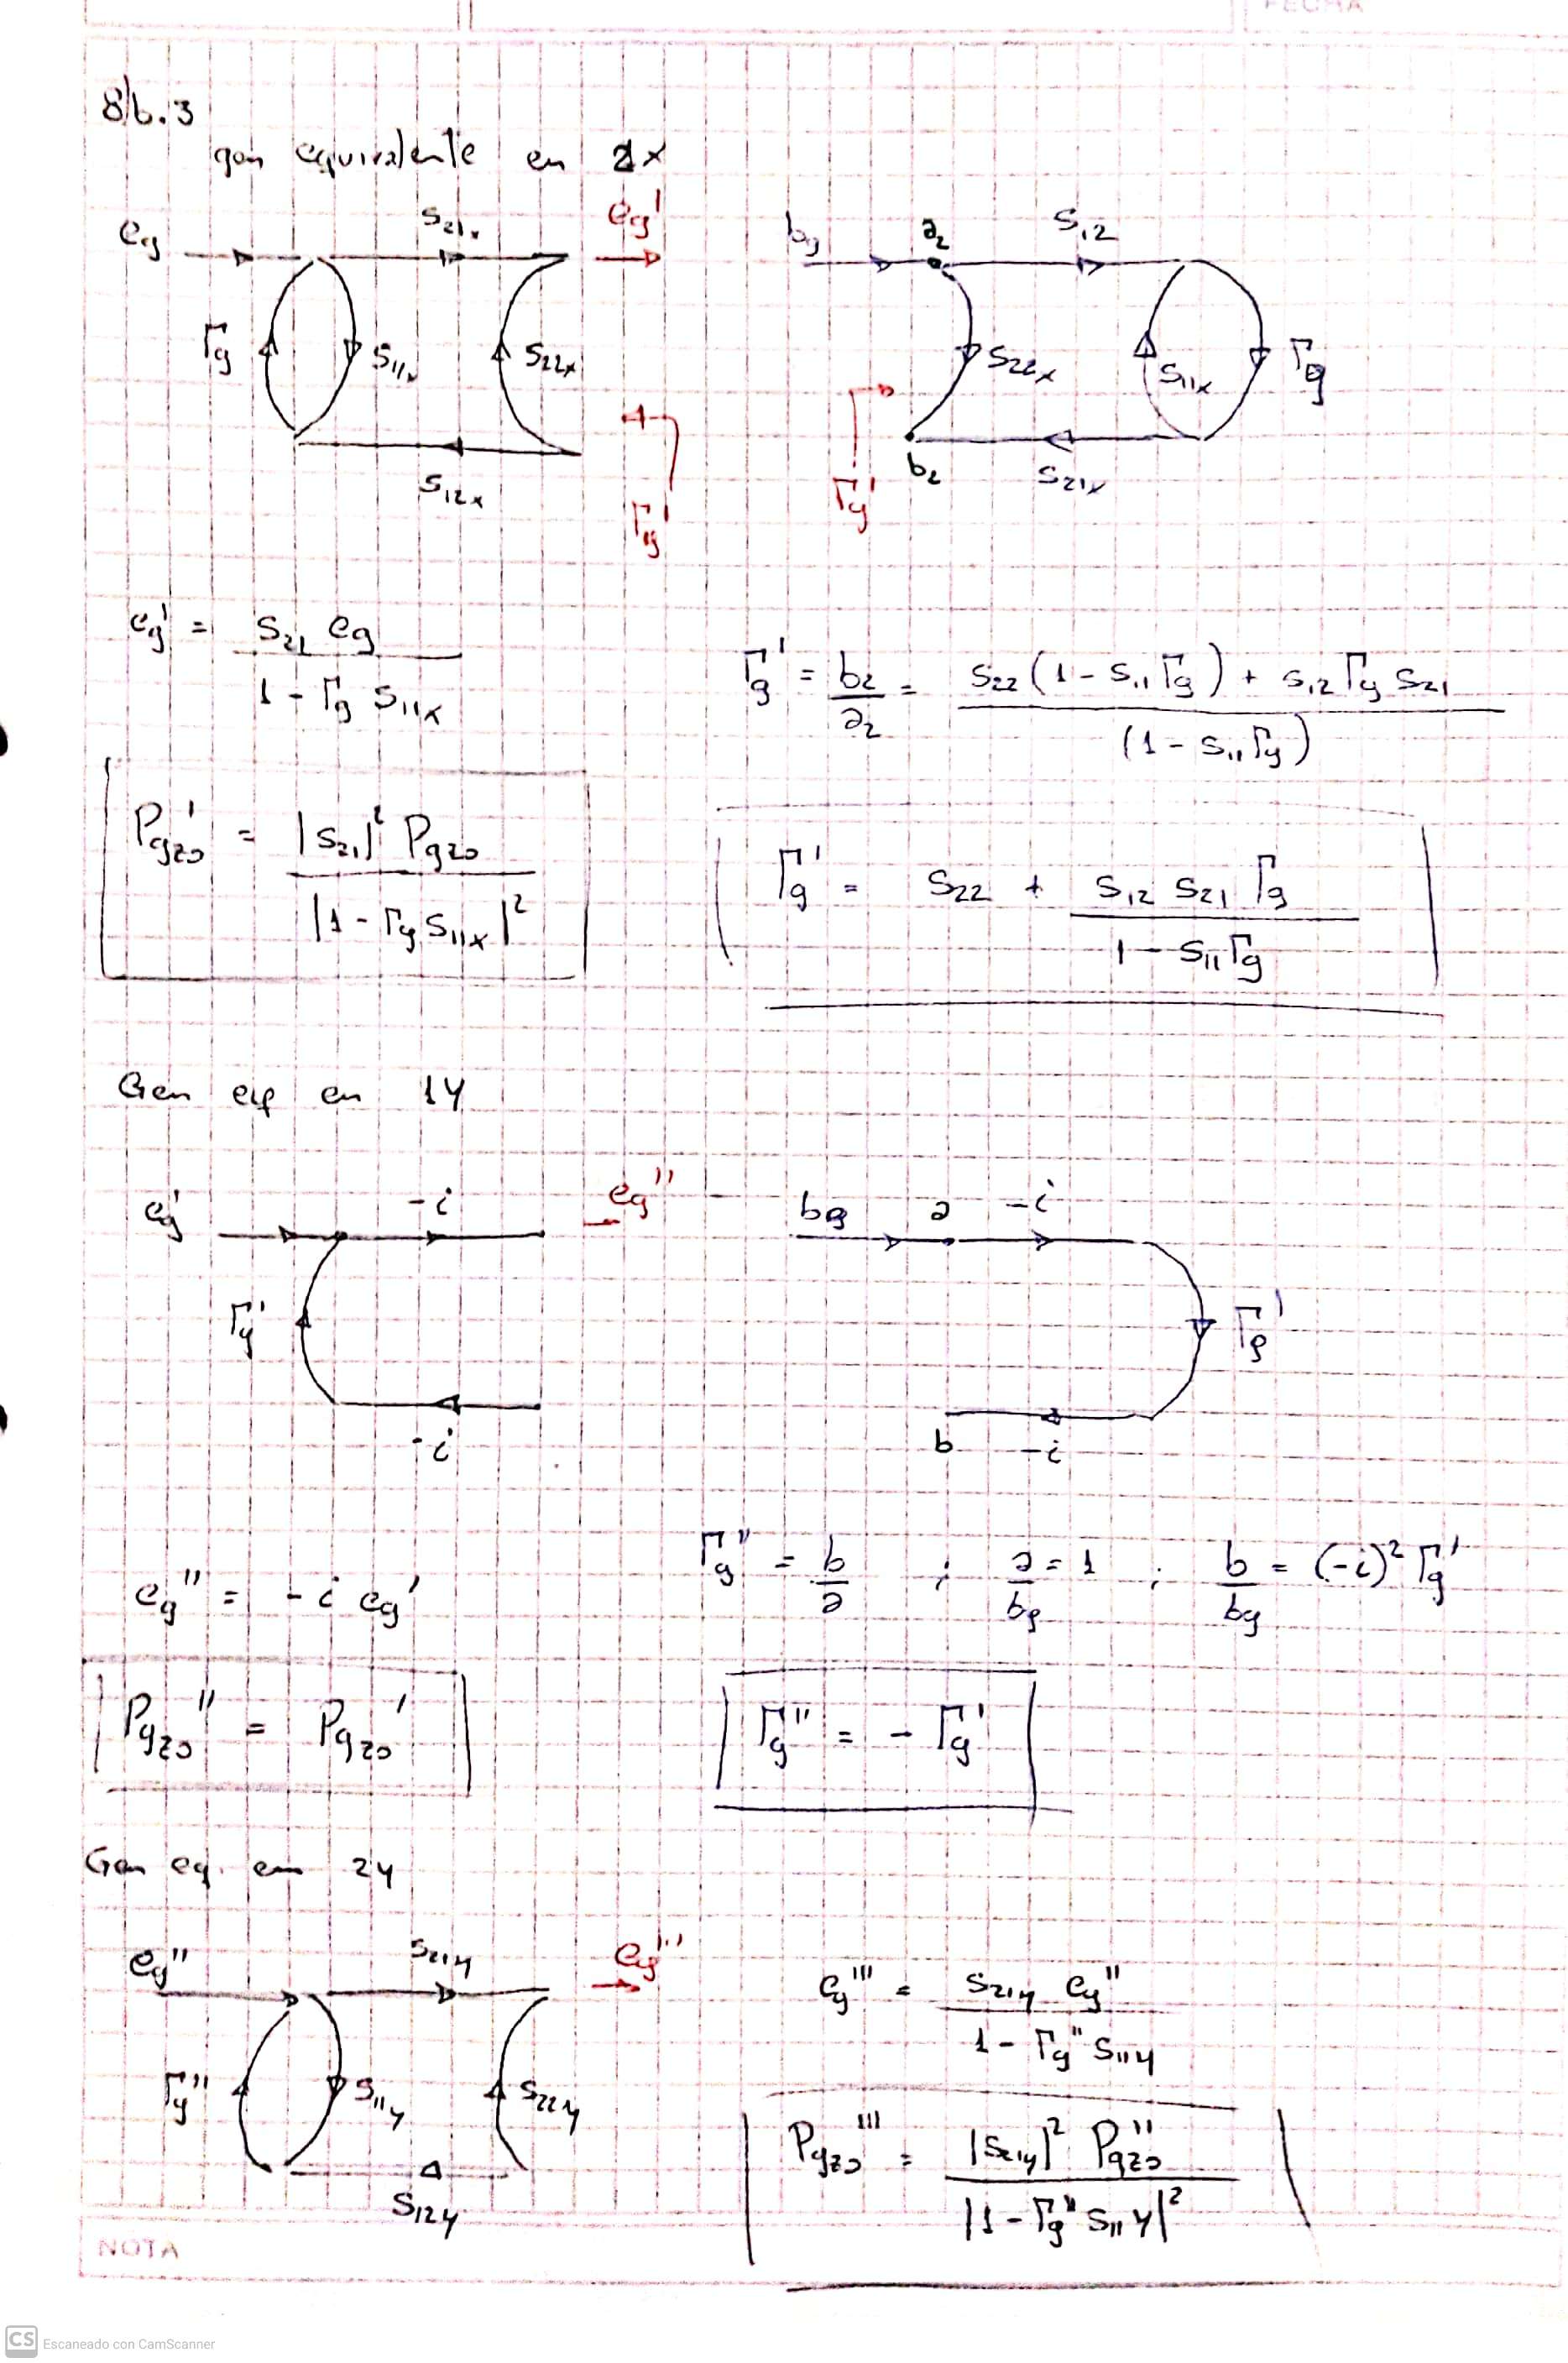 FECHA
8/b.3
gen equivalente en 2x
eg S21x eg' bg a2 S12
Γg S11x S22x S22x S11x Γg
S12x Γg' Γg' b2 S21x
eg' = S21 eg / (1 - Γg S11x)
Γg' = b2/a2 = (S22 (1 - S11 Γg) + S12 Γg S21) / (1 - S11 Γg)
Pgzo' = |S21|² Pgzo / |1 - Γg S11x|²
Γg' = S22 + S12 S21 Γg / (1 - S11 Γg)
Gen eq en 1Y
eg' -i eg'' bg a -i
Γg' Γg'
-i b -i
eg'' = -i eg'
Γg'' = b/a ; a/bg = 1 ; b/bg = (-i)² Γg'
Pgzo'' = Pgzo'
Γg'' = - Γg'
Gen eq. en 2Y
eg'' S21Y eg'''
Γg'' S11Y S22Y
S12Y
eg''' = S21Y eg'' / (1 - Γg'' S11Y)
Pgzo''' = |S21Y|² Pgzo'' / |1 - Γg'' S11Y|²
NOTA
CS Escaneado con CamScanner